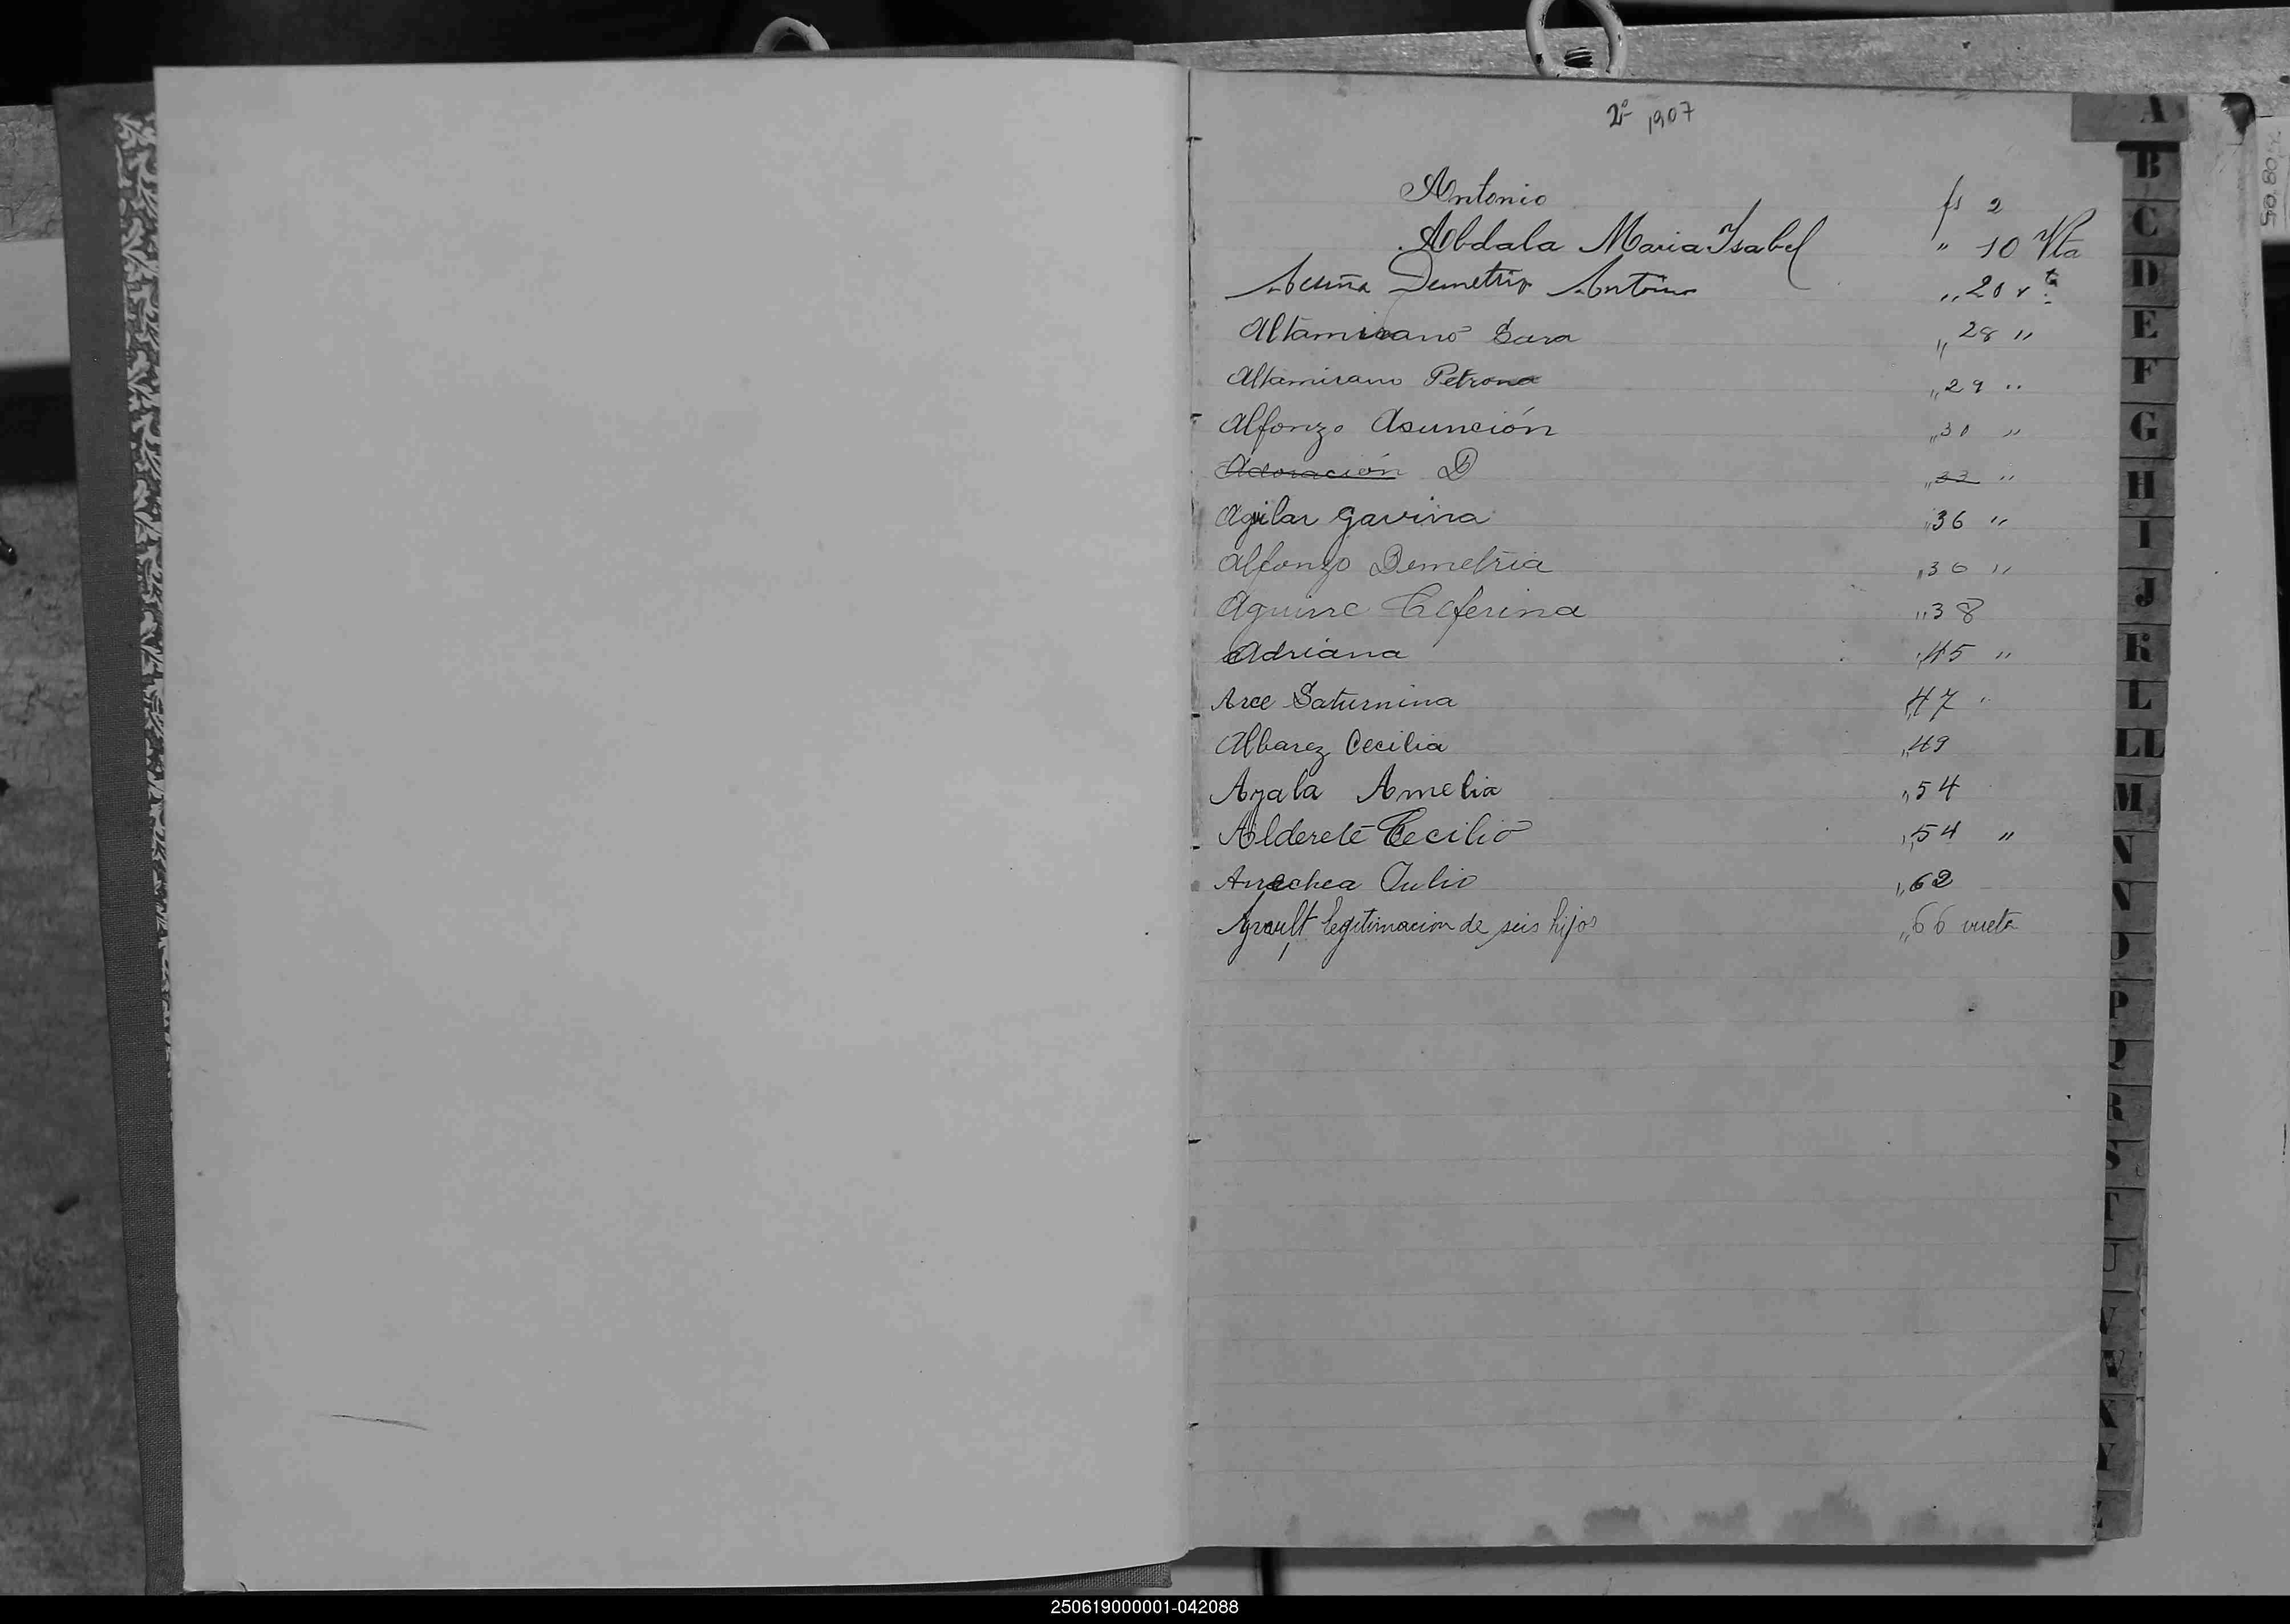 2º 1907
Antonio fs 2
Abdala Maria Isabel " 10 Vta
Acuña Demetrio Antonio " 20 vta
Altamirano Sara " 28 "
Altamirano Petrona " 29 "
Alfonzo Asunción " 30 "
Adoración D " 33 "
Aguilar Gavina " 36 "
Alfonzo Demetria " 36 "
Aguirre Ceferina " 38
Adriana " 45 "
Arce Saturnina " 47 "
Albarez Cecilia " 49
Ayala Amelia " 54
Alderete Cecilio " 54 "
Arrechea Julio " 62
legitimacion de seis hijos " 66 vuelta
A
B
C
D
E
F
G
H
I
J
K
L
LL
M
N
N
O
P
Q
R
S
T
U
V
W
X
Y
Z
250619000001-042088